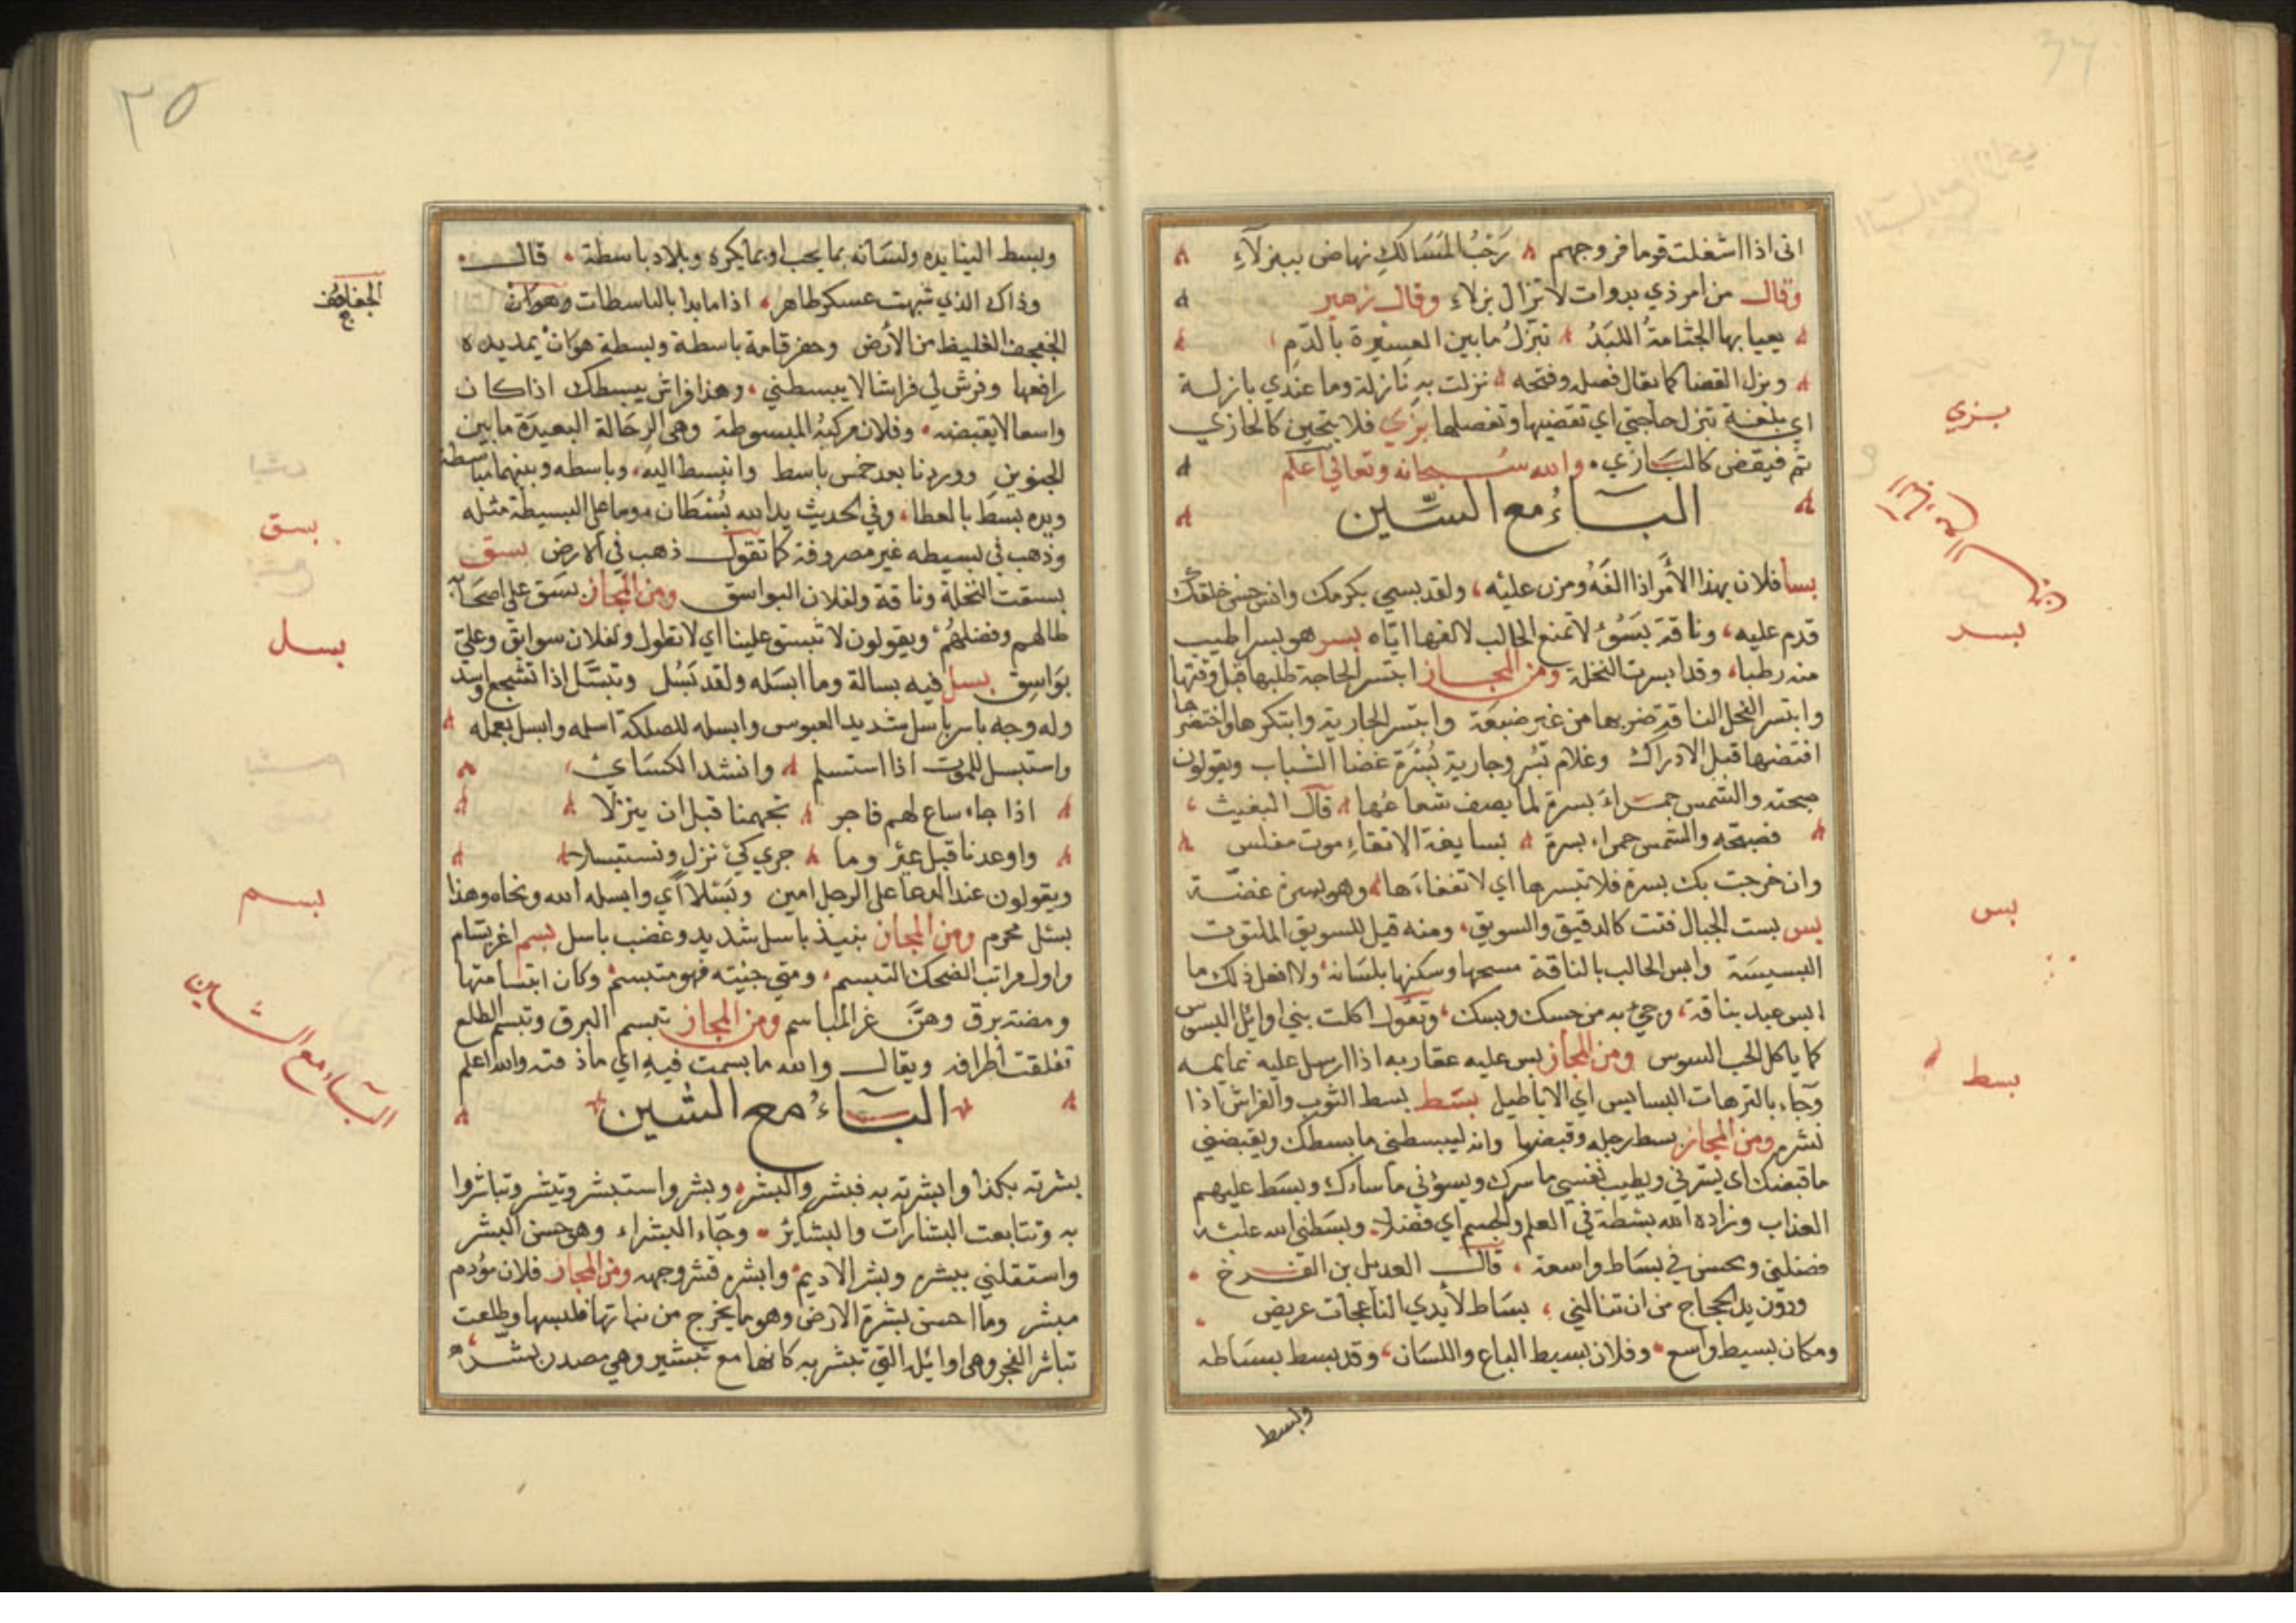 انى اذا اشغلت قوما فروجهم رَحْبُ المَسَالِكِ نهاض ببزلآءِ
وقال من امر ذي بدوات لا تزال بزلاء وقال زهير
يعيا بها الجثامةُ اللبَدُ تبزّلُ ما بين العشيرة بالدّمِ
وبزل القضا كما يقال فصله وفتحه نزلت به نازلة وما عندي بازلة
اي بلغة تبزل حاجتي اي تقضيها وتفصلها بزي فلا يتحين كالحازي
ثم فيقض كالبازي والله سبحانه وتعالى اعلم
البآءُ مع السّين
بسأ فلان بهذا الأمر اذا الفَهُ ومرن عليْه، ولقد بسي بكرمك وانس حسن خلقك
قدم عليه، وناقة بَسُوُءُ لا تمنع الحالب لالفها اياه بسر هو بسر اطيب
منه رطبا، وقد ابسرت النخلة ومن المجاز ابتسر الحاجة طلبها قبل وقتها
وابتسر الفحل الناقة ضربها من غير ضبعة وابتسر الجارية وابتكرها واختضرها
افتضها قبل الادراك وغلام بُسْر وجارية بُسْرَة غضا الشباب ويقولون
صبحته والشمس حمراء بسرة لما يصف شعاعُها قال البعيث
فصبحه والشمس حمراء بسرة بسايفة الانقاءِ موت مغلس
وان خرجت بك بسرة فلا تبسرها اي لا تفقاءَها وهو بسرة غضّة
بس بست الجبال فتت كالدقيق والسويق، ومنه قيل للسويق الملتوت
البسيسَة وابس الحالب بالناقة مسحها وسكنها بلسَانه ولا افعل ذلك ما
ابس عبد بناقة، وجئ به من حسك وبسك، وتقول اكلت بني اوائل البسوس
كما ياكل الحب السوس ومن المجاز بس عليه عقاربه اذا ارسل عليه نمايمه
وجاء بالترهات البسابس اي الاباطيل بسَط بسط الثوب والفراش اذا
نشره ومن المجاز بسط رجله وقبضها وانه ليبسطني ما بسطك ويقبضني
ما قبضك اى يسّرني ويطيب نفسي ما سرك ويسوُني ما سارك وبسَط عليهم
العذاب وزاده الله بسْطة في العلم والجسم اي فضلا وبسَطني الله عليْه
فضلني ونحن في بسَاط واسعة، قال العديل بن الفرخ
ودون يد الحجاج من ان تنالني، بسَاط لأيدي الناعجات عريض
ومكان بسيط واسع وفلان بسيط الباع واللسَان، وقد بسط بسَاطه
وبسط
بزي
البآء مع السين
بسر
بس
بسط
٣٥
وبسط الينا يده ولسَانه بما يحب او بما يكره وبلاد باسطة قال
وذاك الذي شبهت عسكر طاهر، اذا ما بدا بالباسطات وهوان
الجفجف الغليظ من الأرض وحفر قامة باسطة وبسطة هوان يمد يده
رافعها وفرش لي فراشا لا يبسطني، وهذا فراش يبسطك اذا كان
واسعا لا يقبضه وفلان مركبُه المبسوطة وهى الرحَالة البعيدَة ما بين
الحنوين ووردنا بعد خمس باسط وانبسط اليه، وباسطه وبينهما مباسطة
ويده بسَط بالعطا، وفي الحديث يد الله بُسْطَان وما على البسيطة مثله
وذهب في بسيطه غير مصروفة كما تقول ذهب في الارض بسق
بسقت النخلة وناقة ولفلان البواسق ومن المجاز بسَق على اصحَابه
طالهم وفضلهُم ويقولون لا تبسق علينا اي لا تطول ولفلان سوابق وعلي
بواسِق بسل فيه بسالة وما ابسَله ولقد بَسُل وتبسَّل اذا تشجع واسد
وله وجه باسر باسل شديد العبوس وابسله للهلكة اسلمه وابسل بعمله
واستبسل للموت اذا استسلم وانشد الكسَائ
اذا جاء ساع لهم فاجر تجهمنا قبل ان ينزلا
واوعدنا قبل
ويقولون عند الدعا على الرجل امين وبَسْلا اي وابسله الله ونحاه وهذا
بسل محرم ومن المجاز نبيذ باسل شديد وغضب باسل بسم اغر بسّام
واول مراتب الضحك التبسم، ومتى جئته فهو متبسم وكان ابتسامتها
ومضة برق وهنَّ غر المباسم ومن المجاز تبسم البرق وتبسم الطلع
تفلقت اطرافه ويقال والله ما بسمت فيه اي ما ذقته والله اعلم
البآءُ مع الشين
بشرته بكذا وابشرته به فبشر وابشر وبشر واستبشر وتبشر وتباشروا
به وتتابعت البشارات والبشائر وجاء البشراء وهو حسن البشر
واستقلني ببشره وبشر الاديم وابشره قشر وجهه ومن المجاز فلان مؤدم
مبشر وما احسن بشرة الارض وهو ما يخرج من نباتها فلبسها وطلعت
تباشر الفجر وهى اوائله التي تبشر به كانها مع تبشير وهي مصدر بشّر
الجفاجف
بسق
بسل
بسم
البآء مع الشين